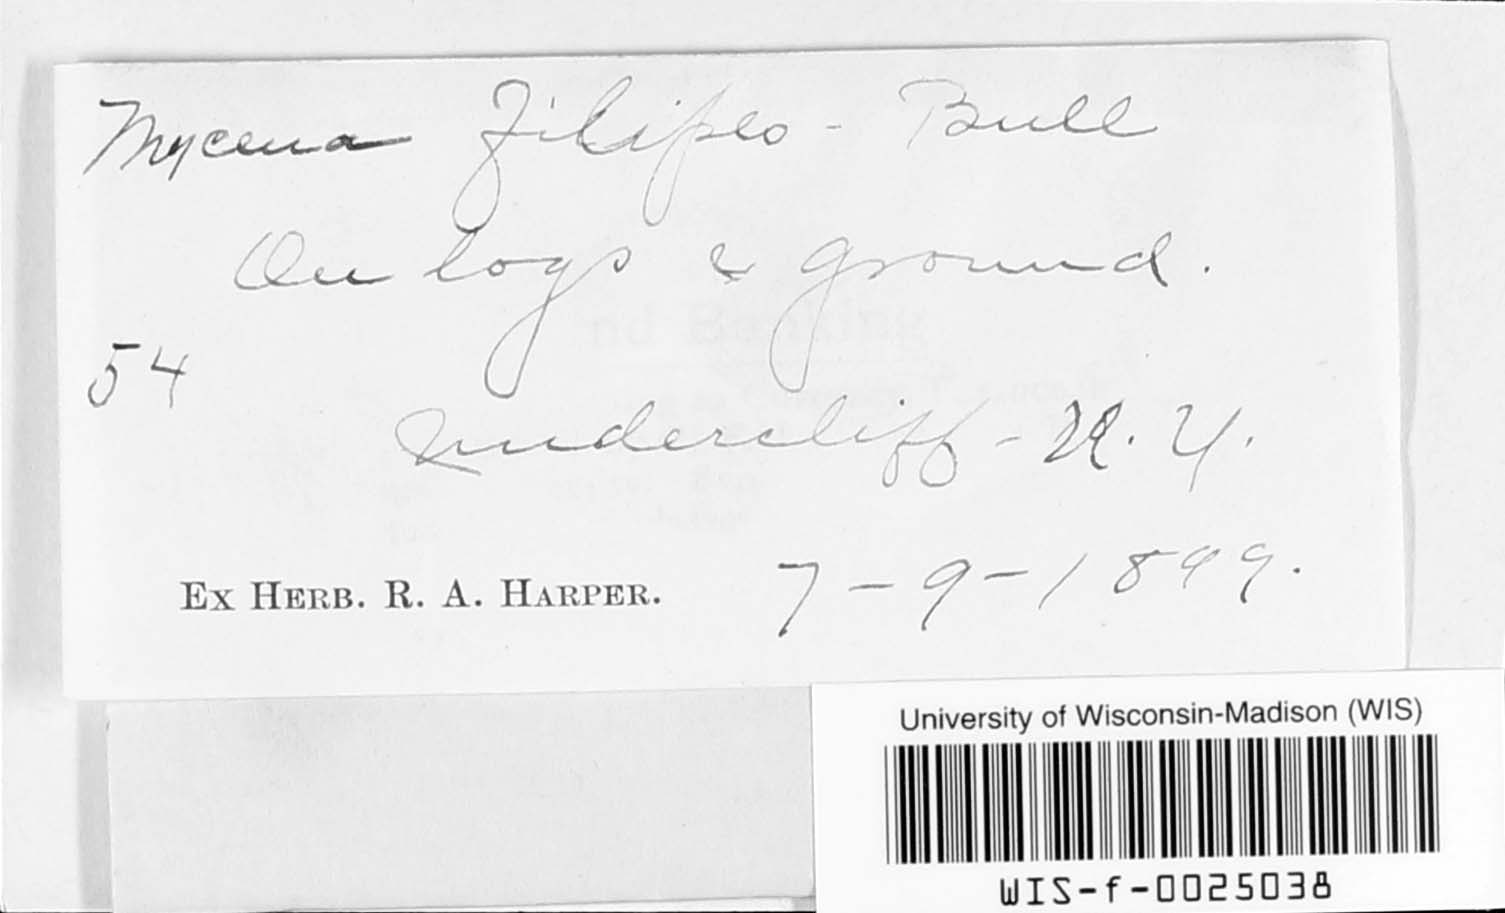 Mycena filipes - Bull
On logs & ground.
54
Undercliff - N. Y.
Ex Herb. R. A. Harper.
7-9-1899.
University of Wisconsin-Madison (WIS)
WIS-f-0025038